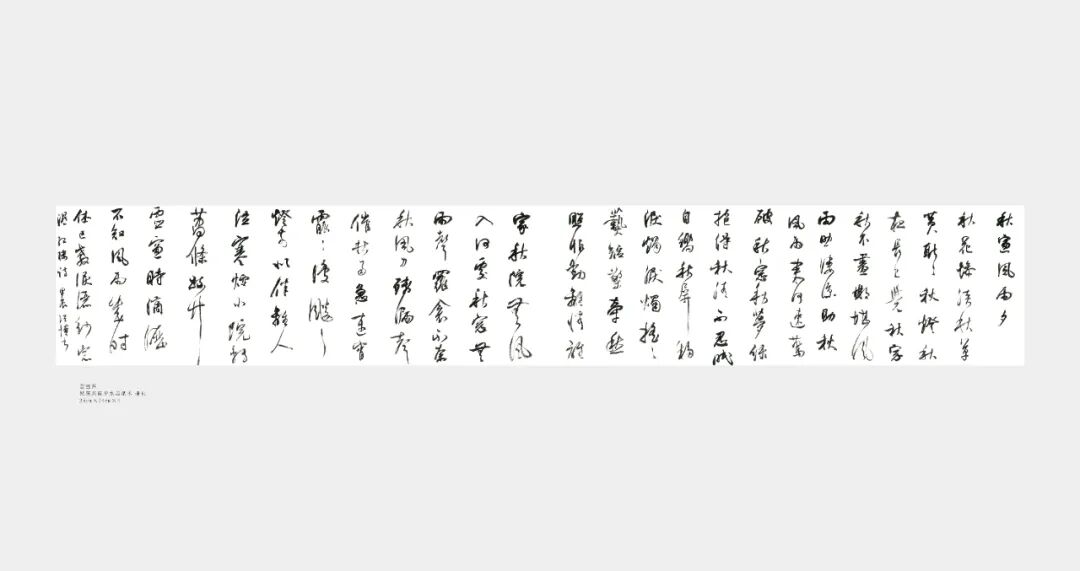 秋窗風雨夕
秋花慘淡秋草
黃耿〻秋燈秋
夜長已覺秋窗
秋不盡那堪風
雨助淒涼助秋
風雨來何速驚
破秋窗秋夢綠
抱得秋情不忍眠
自向秋屏移
淚燭淚燭搖〻
爇短檠牽愁
照恨動離情誰
家秋院無風
入何處秋窗無
雨聲羅衾不奈
秋風力殘漏聲
催秋雨急連宵
霢〻復颼〻
燈前似伴離人
泣寒煙小院轉
蕭條疏竹
虛窗時滴瀝
不知風雨幾時
休已教淚灑紗窗
濕 紅樓詩